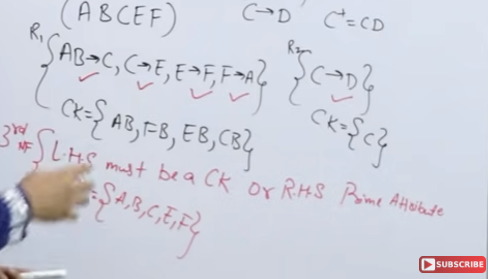 (ABCEF) C→D C⁺=CD
R₁ {AB→C, C→E, E→F, F→A} R₂ {C→D}
CK={AB, FB, EB, CB} CK={C}
3rd NF {L.H.S must be a CK OR R.H.S Prime Attribute
={A,B,C,E,F}
SUBSCRIBE